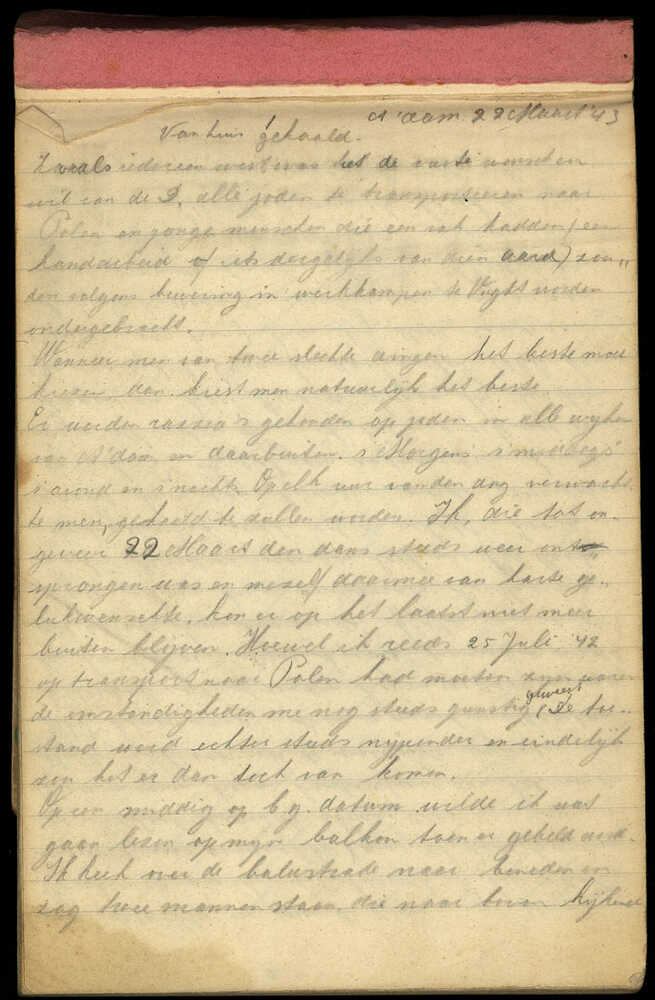 A'dam 22 Maart '43
Van huis gehaald.
Zooals iedereen weet was het de vaste wensch en
wil van de D. alle joden te transporteeren naar
Polen en jonge menschen die een vak hadden (een
handarbeid of iets dergelijks van dien aard) zou„
den volgens bewering in werkkampen te Vught worden
ondergebracht.
Wanneer men van twee slechte dingen het beste moet
kiezen dan kiest men natuurlijk het beste.
Er werden razzia's gehouden op joden in alle wijken
van A'dam en daarbuiten. 's Morgens 's middags
's avond en 's nachts. Op elk uur van den dag verwacht„
te men, gehaald te zullen worden. Ik, die tot on„
geveer 22 Maart den dans steeds weer ont„
sprongen was en mezelf daarmee van harte ge„
lukwenschte, kon er op het laatst niet meer
buiten blijven. Hoewel ik reeds 25 Juli '42
op transport naar Polen had moeten zijn waren
de omstandigheden me nog steeds gunstig geweest. De toe„
stand werd echter steeds nijpender en eindelijk
zou het er dan toch van komen.
Op een middag op b.g. datum wilde ik wat
gaan lezen op mijn balkon toen er gebeld werd.
Ik keek over de balustrade naar beneden en
zag twee mannen staan, die naar boven kijkend